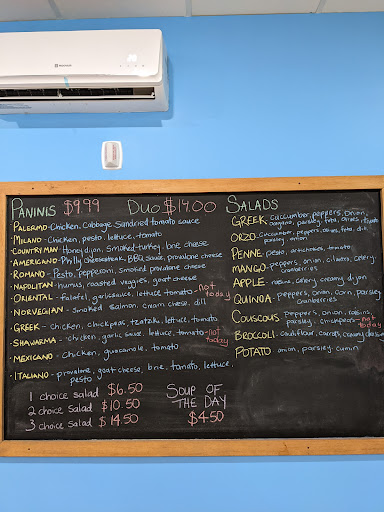 PANINIS $9.99 DUO $14.00
PALERMO - Chicken, Cabbage, Sundried tomato sauce
MILANO - Chicken, pesto, lettuce, tomato
COUNTRYMAN - Honey dijon, smoked turkey, brie cheese
AMERICANO - Philly cheesesteak, BBQ sauce, provalone cheese
ROMANO - Pesto, pepperoni, smoked provalone cheese
NAPOLITAN - humus, roasted veggies, goat cheese
ORIENTAL - falafel, garlic sauce, lettuce, tomato - not today
NORVEGIAN - Smoked salmon, cream cheese, dill
GREEK - Chicken, chickpeas, tzatziki, lettuce, tomato
SHAWARMA - chicken, garlic sauce, lettuce, tomato - not today
MEXICANO - chicken, guacamole, tomato
ITALIANO - provalone, goat cheese, brie, tomato, lettuce,
pesto
1 choice salad $6.50
2 choice salad $10.50
3 choice salad $14.50
SOUP OF
THE DAY
$4.50
SALADS
GREEK Cuccumber, peppers, onion,
oregano, parsley, feta, olives
ORZO - Cuccumber, peppers, olives, feta, dill,
parsley, onion
PENNE - pesto, artichokes, tomato,
MANGO - peppers, onion, cilantro, celery,
cranberries
APPLE - raisins, celery, creamy dijon
QUINOA - Peppers, onion, corn, parsley
cranberries
COUSCOUS Peppers, onion, raisins,
parsley, chickpeas - not today
BROCCOLI - Cauliflour, carrots, creamy
POTATO onion, parsley, cumin